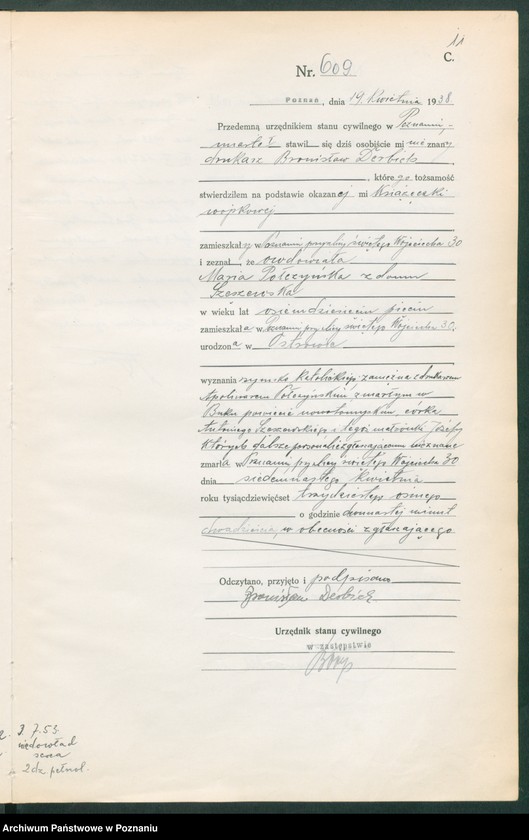 11
C.
Nr. 609
Poznań, dnia 19 kwietnia 1938
Przedemną urzędnikiem stanu cywilnego w Poznaniu,-
stawił się dziś osobiście mi nie znany
drukarz Bronisław Derbich
, które go tożsamość
stwierdziłem na podstawie okazanej mi książeczki
wojskowej
zamieszkały w Poznaniu, przy ulicy świętego Wojciecha 30
i zeznał, że owdowiała
Maria Połczyńska z domu
Szeszewska
w wieku lat osiemdziesięciu pięciu
zamieszkała w Poznaniu, przy ulicy świętego Wojciecha 30,
urodzona w Ostrowie
wyznania rzymsko katolickiego, zamężna z drukarzem
Apolinarem Połczyńskim, zmarłym w
Buku powiecie nowotomyskim, córka
Antoniego Szeszewskiego i tegoż małżonki Józefy
których dalsze personalia zgłaszającemu nieznane
zmarła w Poznaniu, przy ulicy świętego Wojciecha 30
dnia siedemnastego kwietnia
roku tysiącdziewięćset trzydziestego ósmego
o godzinie dwunastej minut
w obecności zgłaszającego
Odczytano, przyjęto i podpisano
Bronisław Derbich
Urzędnik stanu cywilnego
w zastępstwie
7.53
Archiwum Państwowe w Poznaniu